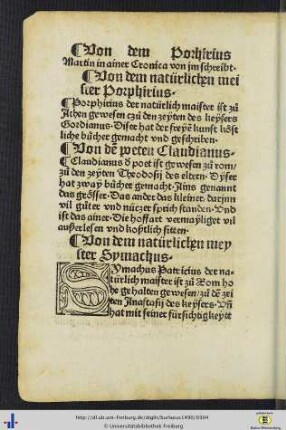 ¶Von dem Porhirius
Martin in ainer Cronica von jm schreibt·
¶Von dem natürlichen mei
ster Porphirius·
¶Porphirius der natürlich maister ist zů
Athen gewesen czů den zeyten des keysers
Gordianus· Diser hat der freyen kunst köst
liche bůcher gemacht vnd geschriben·
¶Von dē poeten Claudianus·
¶Claudianus d poet ist gewesen zů rom/
zů den zeyten Theodosij des eltern· Dyser
hat zway bůcher gemacht· Ains genannt
das grösser· Das ander das kleiner· darjnn
vil gůter vnd nüczer sprich standen· Vnd
ist das ainer· Die hoffart vermayliget vil
außerlesen vnd kostlich sitten·
¶Von dem natürlichen mey
ster Symachus·
SYmachus Patricius der na
türlich maister ist zů Rom ho
he gehalten gewesen/ zů dē zei
ten Anastasij des keysers· Vñ
hat mit seiner fürsichtigkeytt
http://dl.ub.uni-freiburg.de/diglit/burlaeus1490/0304
© Universitätsbibliothek Freiburg